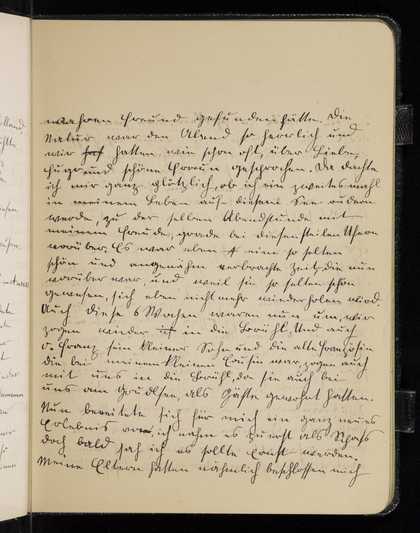 wahren Freund gefunden hätte. Die
Natur war den Abend so herrlich und
wir hatten, wie schon oft, über Liebe,
Jugend schöne Frauen gesprochen. Da dachte
ich mir ganz plötzlich, ob ich ein zweites mahl
in meinem Leben auf diesem See rudern
werde, zu der selben Abendstunde mit
meinem Freunde, grade bei diesen steilen Ufern
vorüber. Es war eben eine so selten
schön und angenehm verbrachte Zeit, die nun
vorüber war, und weil sie so selten schön
gewesen, sich eben nicht mehr wiederholen wird.
Auch diese 6 Wochen waren nun um, wir
zogen wieder in die Brühl. Und auch
v. Franz sein kleiner Sohn und die alte Französin
die bei meinem kleinen Cousin war, zogen auch
mit uns in die Brühl, da sie auch bei
uns am Grudlsee, als Gäste gewohnt hatten.
Nun bereitete sich für mich ein ganz neues
Erlebnis vor, ich nahm es zuerst als Spass
doch bald sah ich es sollte Ernst werden.
Meine Eltern hatten nähmlich beschlossen mich